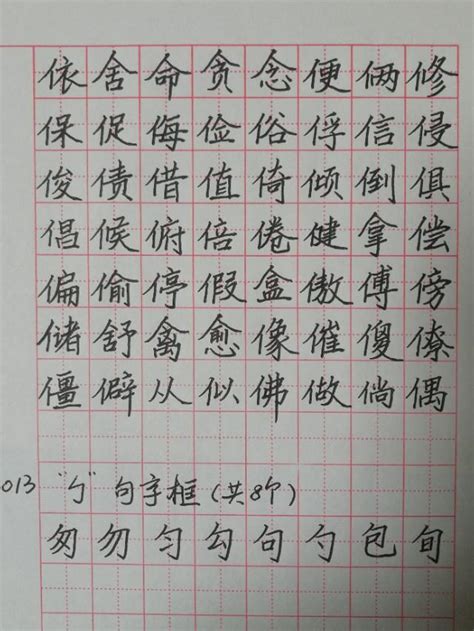 依舍命贪念便俩修
保促侮俭俗俘信侵
俊债借值倚倾倒俱
倡候俯倍倦健拿偿
偏偷停假盒傲傅傍
储舒禽愈像催傻僚
僵僻从似佛做倘偶
013 “勹”句字框(共8个)
匆勿匀勾句勺包旬